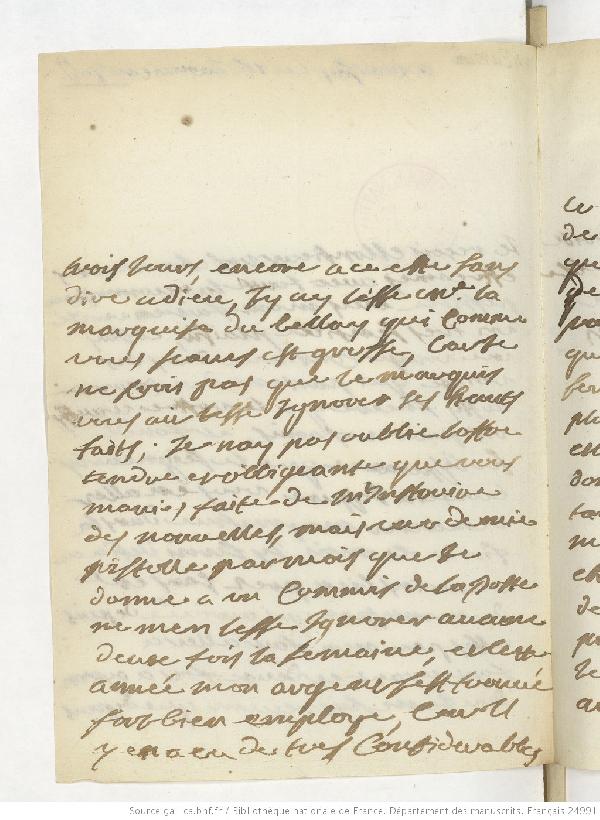 trois jours, encore a ceette sans
dire adieu, J'y ay lesse me. la
marquise du bellay qui comme
vous scaves est grosse, Car Je
ne crois pas que le marquis
vous ait lesse Ignorer ses hauts
faits, Je nay pas oublie loffre
tendre et obligeante que vous
mavies faite de minstruire
des nouvelles, mais une demie
pistolle par mois que Je
donne a un Commis de la poste
ne men lesse Ignorer aucune
deux fois la semaine, et cette
année mon argent sest trouvé
fort bien employé, Car Il
y en a eu de tres Considerables
ce
de
que
Source gallica.bnf.fr / Bibliothèque nationale de France. Département des manuscrits. Français 24991